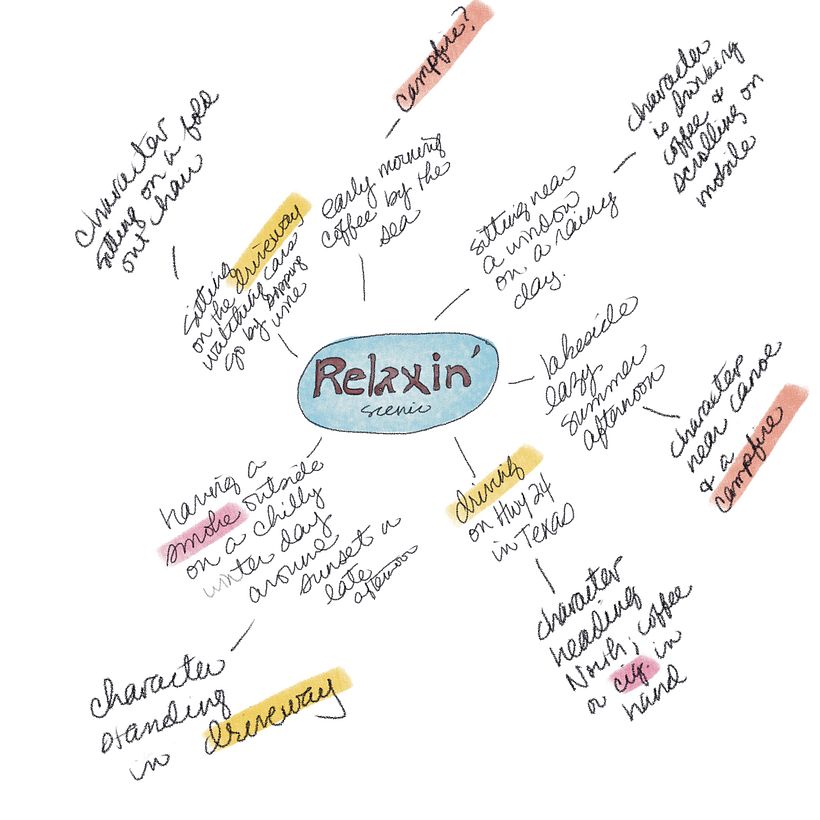 Relaxin'
scenic
early morning
coffee by the
sea
campfire?
sitting near
a window
on a rainy
day.
character
is drinking
coffee &
scrolling on
mobile
lakeside
lazy
summer
afternoon
character
near canoe
& a
campfire
driving
on Hwy 24
in Texas
character
heading
North; coffee
or cig. in
hand
having a
smoke outside
on a chilly
winter day
around
sunset or
late
afternoon
character
standing
in driveway
sitting
on the driveway
watching cars
go by
time
character
sitting on a fold
out chair